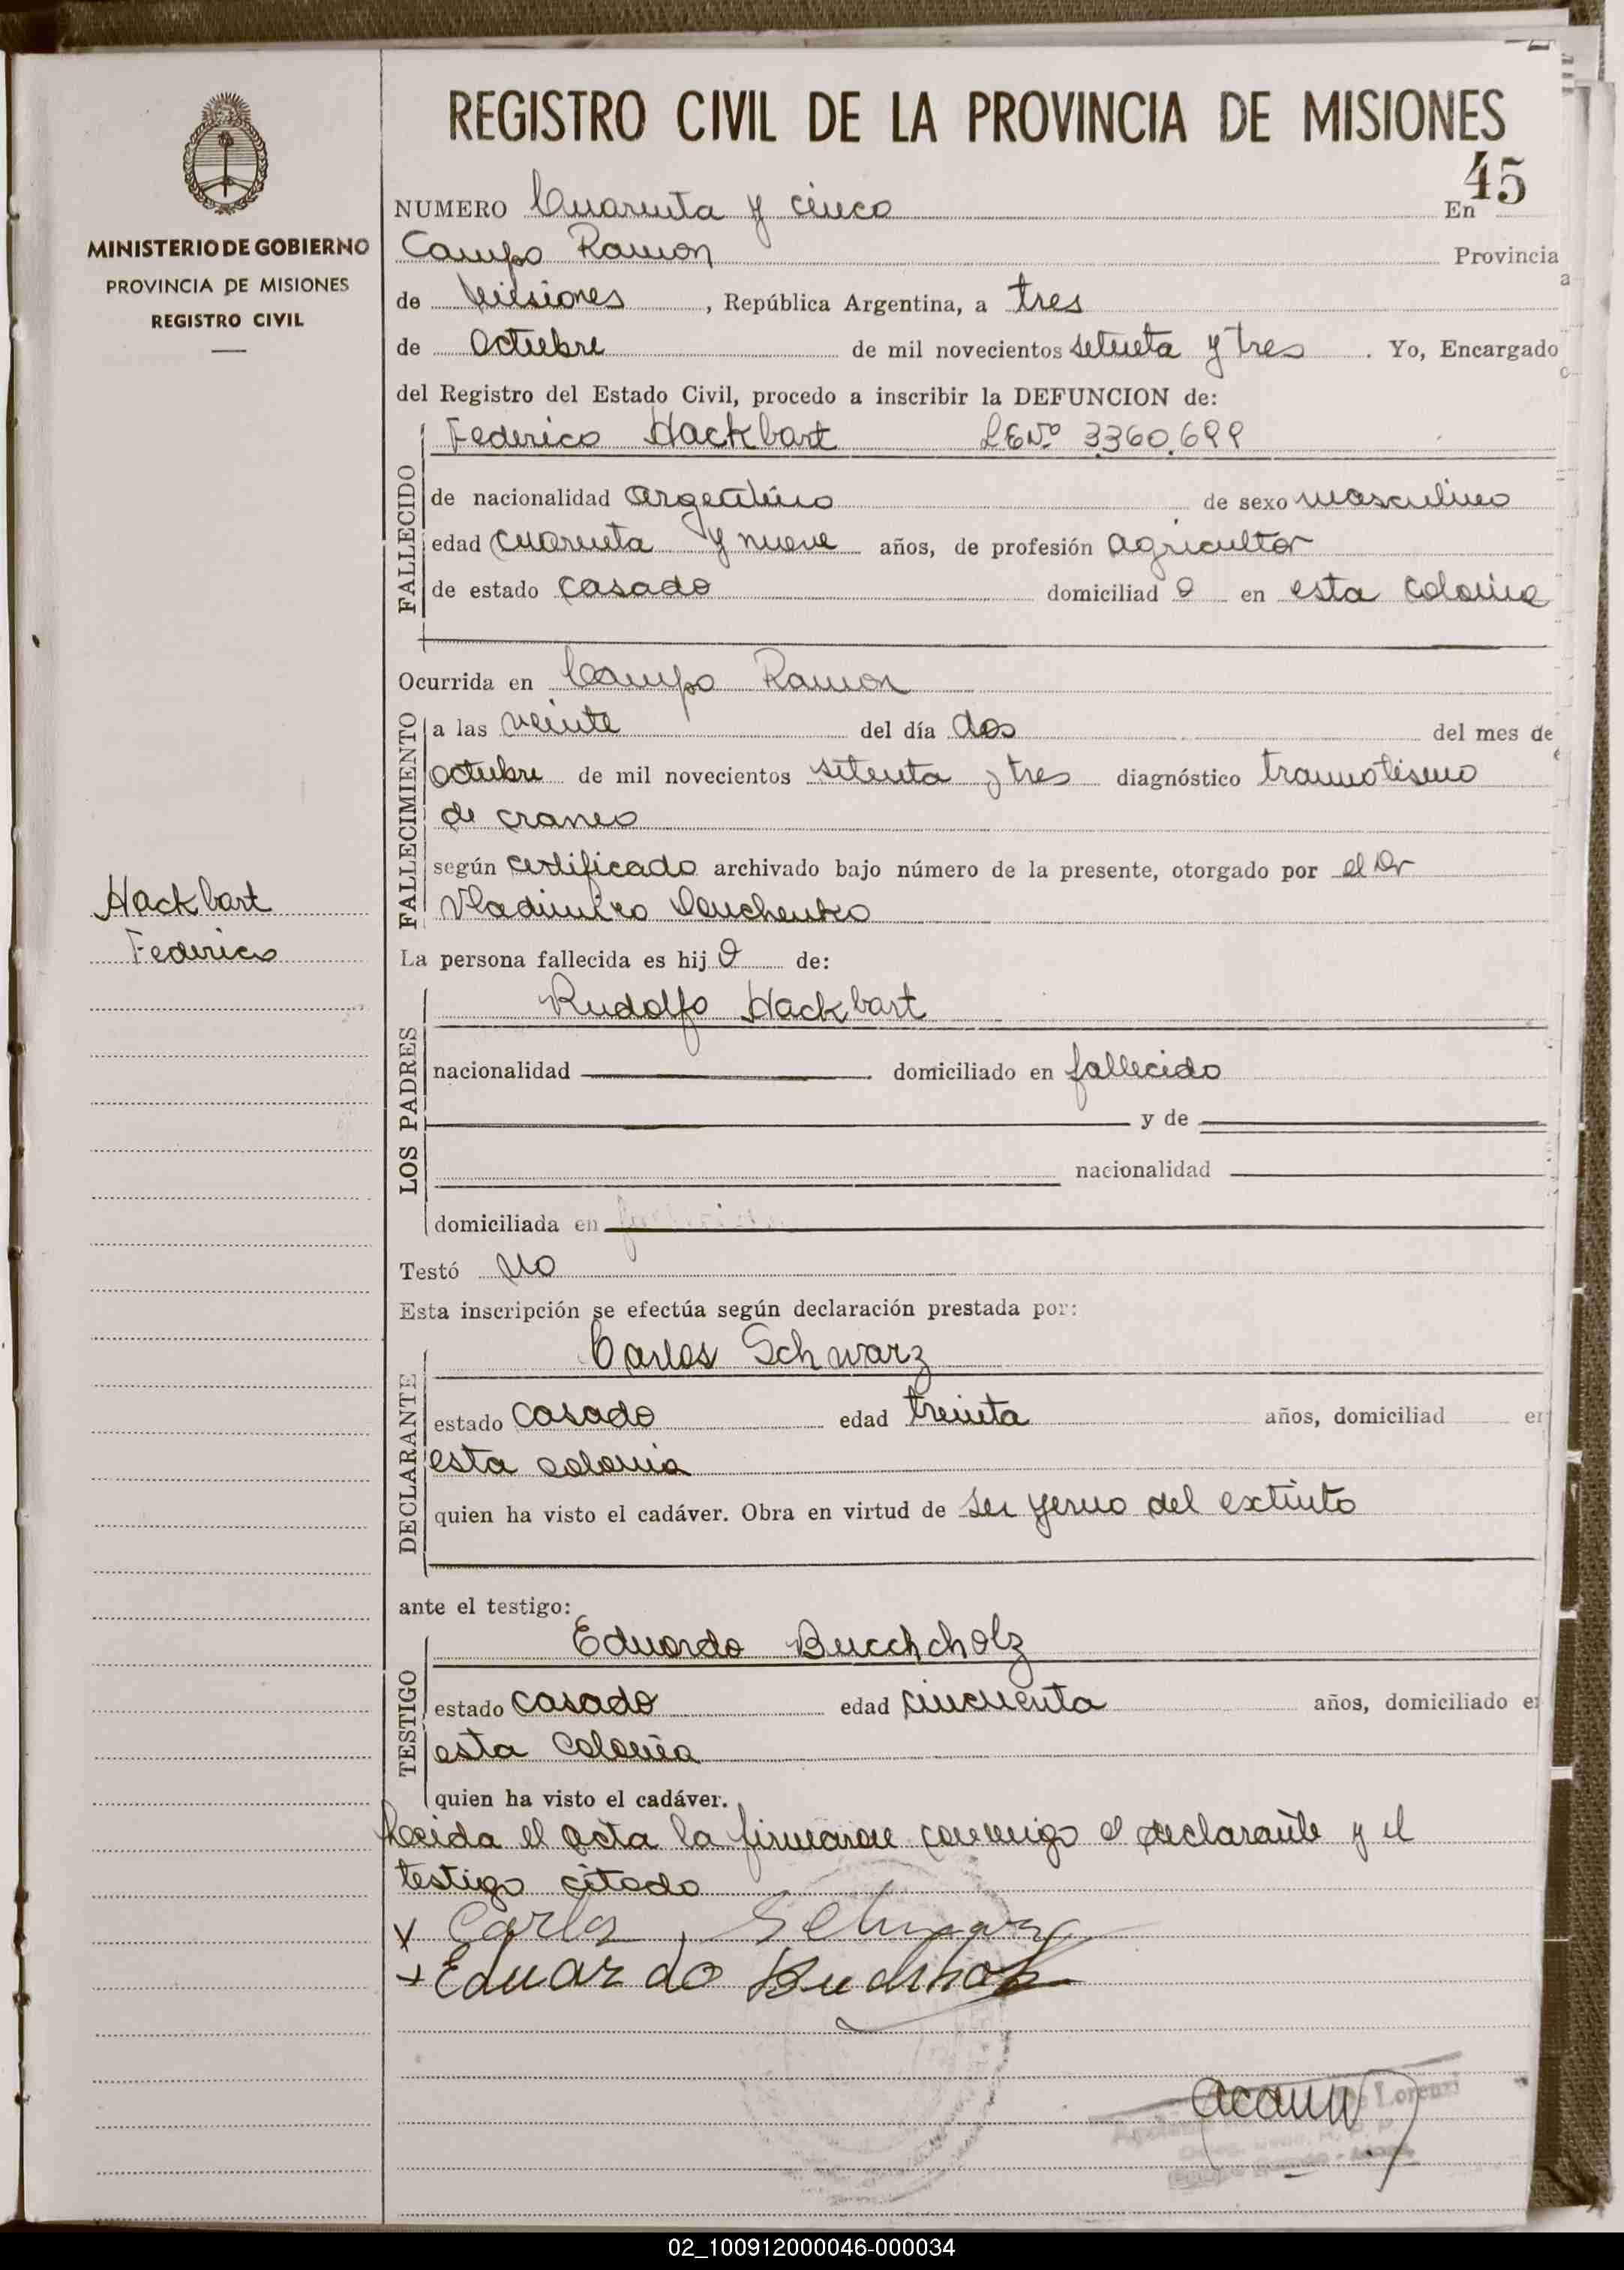 REGISTRO CIVIL DE LA PROVINCIA DE MISIONES
45
MINISTERIO DE GOBIERNO
PROVINCIA DE MISIONES
REGISTRO CIVIL
NUMERO Cuarenta y cinco En
Campo Ramon Provincia
de Misiones, República Argentina, a tres
de Octubre de mil novecientos setenta y tres. Yo, Encargado
del Registro del Estado Civil, procedo a inscribir la DEFUNCION de:
FALLECIDO
Federico Hackbart LENº 3360.699
de nacionalidad argentino de sexo masculino
edad cuarenta y nueve años, de profesión agricultor
de estado casado domiciliad o en esta colonia
Ocurrida en Campo Ramon
FALLECIMIENTO
a las veinte del día dos del mes de
octubre de mil novecientos setenta y tres diagnóstico traumatismo
de craneo
según certificado archivado bajo número de la presente, otorgado por el Dr
Vladimiro
Hackbart
Federico
La persona fallecida es hij o de:
LOS PADRES
Rudolfo Hackbart
nacionalidad domiciliado en fallecido
y de
nacionalidad
domiciliada en
Testó no
Esta inscripción se efectúa según declaración prestada por:
DECLARANTE
Carlos Schwarz
estado casado edad treinta años, domiciliad en
esta colonia
quien ha visto el cadáver. Obra en virtud de ser yerno del extinto
ante el testigo:
TESTIGO
Eduardo Bucchcholz
estado casado edad cincuenta años, domiciliado en
esta colonia
quien ha visto el cadáver.
Leida el acta la firmaron conmigo el declarante y el
testigo citado
x Carlos Schwarz
x Eduardo Buchholz
Lorenzi
02_100912000046-000034